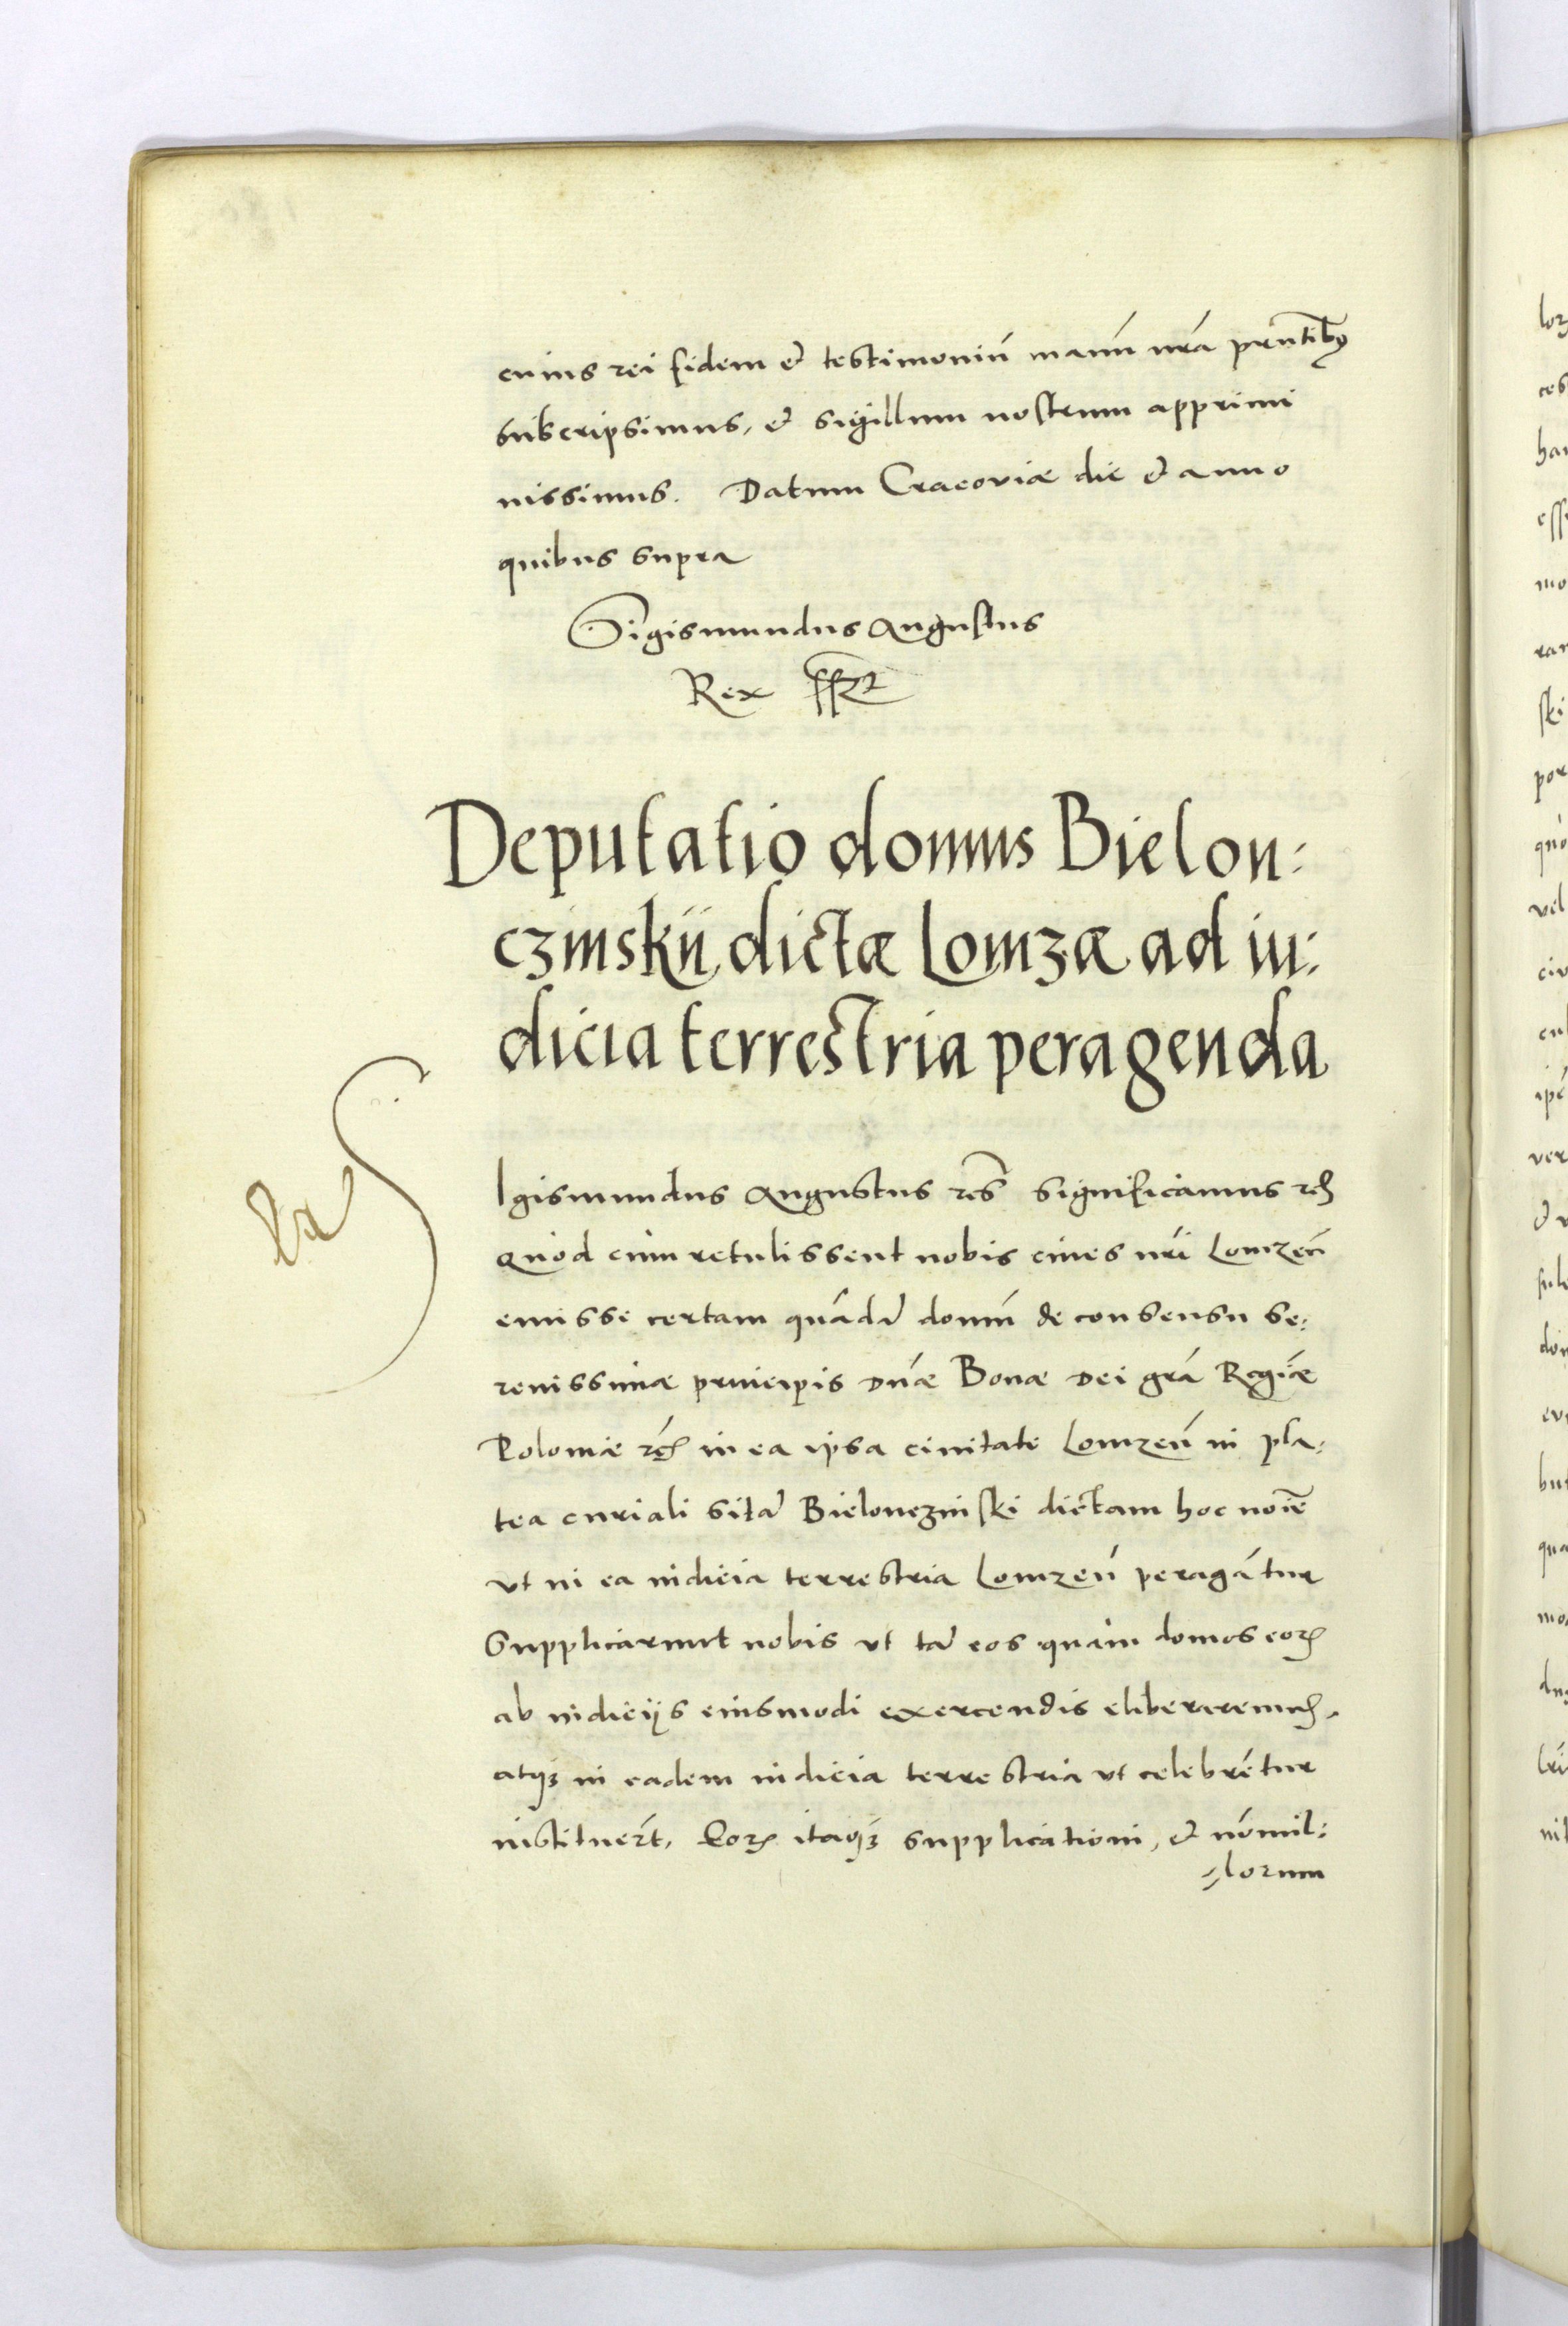 cuius rei fidem et testimoniũ manũ nrã prñtibꝰ
subscripsimus, et sigillum nostrum apprimi
iussimus. Datum Cracoviæ die et anno
quibus supra
Sigismundus Augustus
Rex sszt
Deputatio domus Bielon:
czinskij dictæ Lomzæ ad iu:
dicia terrestria peragenda
Igismundus Augustus res̃ significamus rc̃
Quòd cùm retulissent nobis cives nr̃i Lomzeñ
emisse certam quãdã domũ de consensu se:
renissimæ principis Dnæ̃ Bonæ Dei grã Reginæ
Poloniæ rc̃ in ea ipsa civitate Lomzeñ in pla:
tea curiali sitã Bielonczinski dictam hoc noĩe
vt in ea iudicia terrestria Lomzeñ peragãtur
Supplicarunt nobis vt tã eos quàm domos eoꝝ
ab iudicijs eiusmodi exercendis eliberaremus,
atqꝫ in eadem iudicia terrestria vt celebrẽtur
institueret̃. Eoꝝ itaqꝫ supplicationi, et nõnul:
lorum